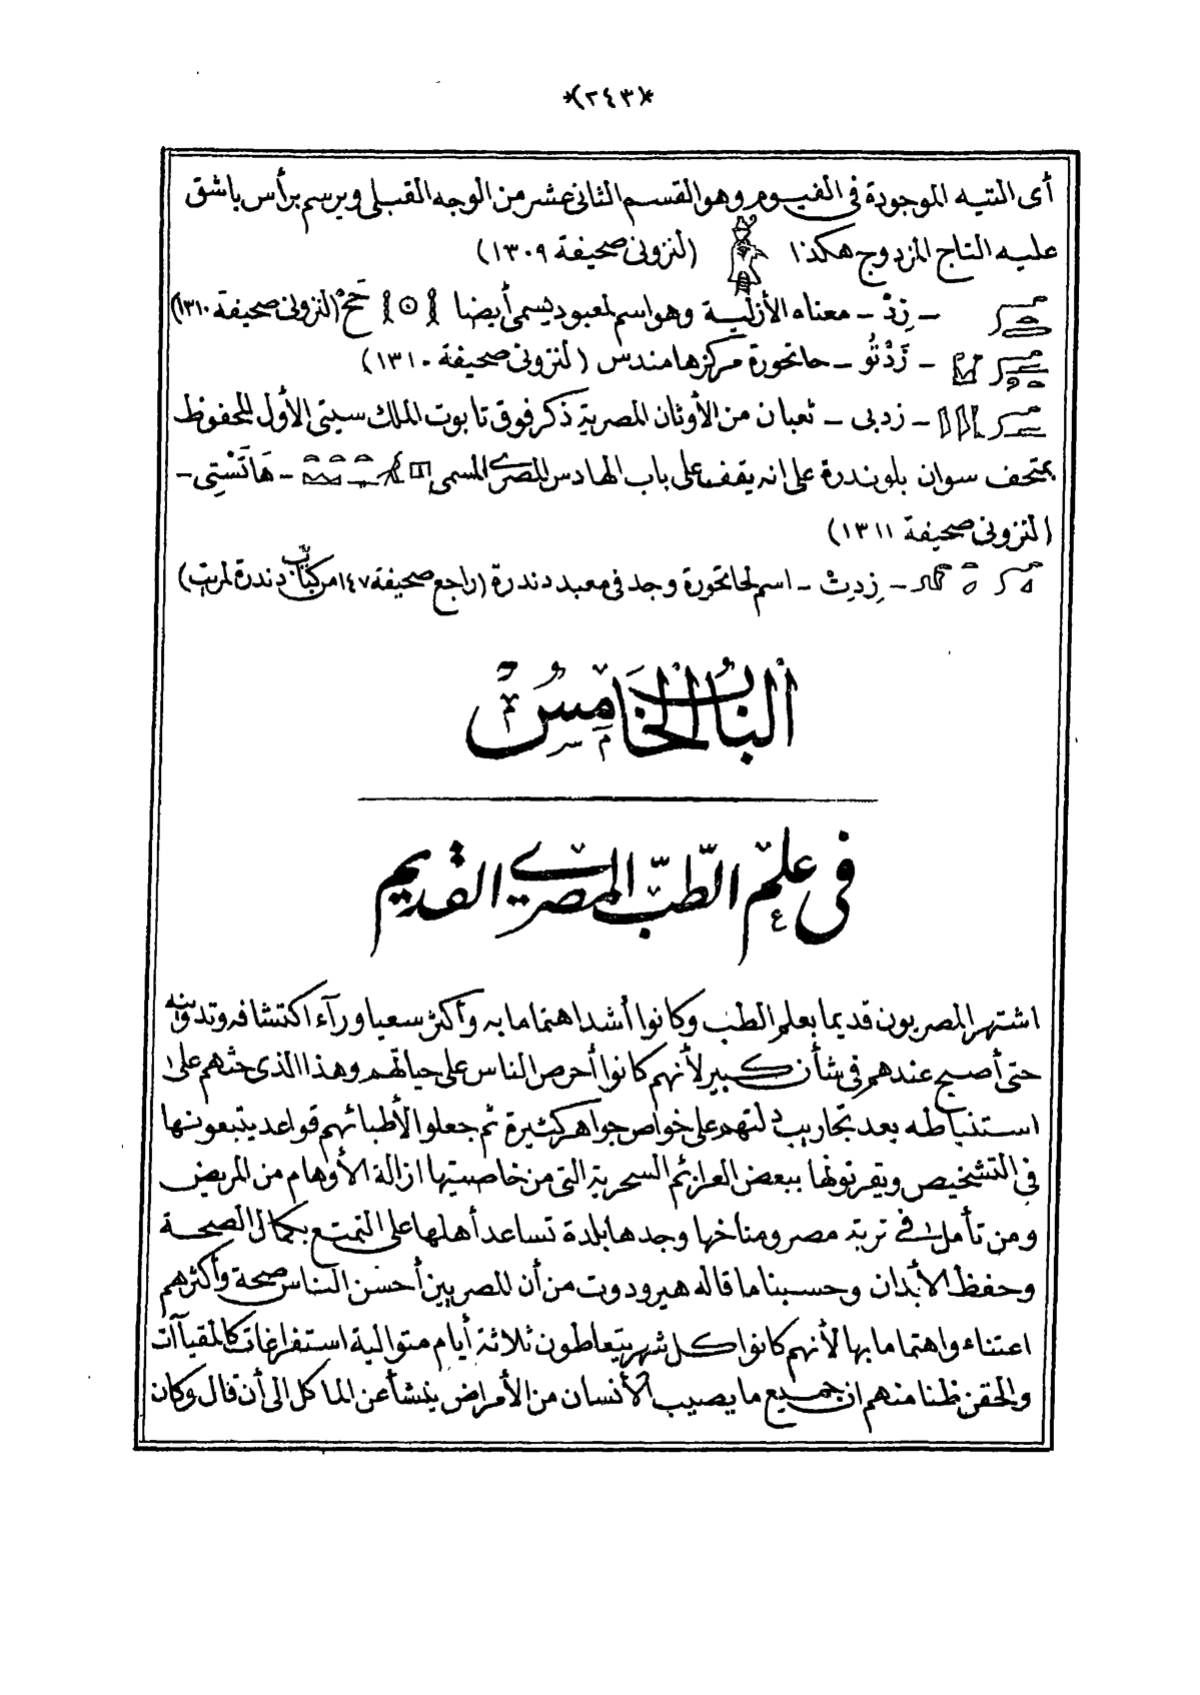 *(٢٤٣)*
أى التيه الموجودة فى الفيوم وهو القسم الثانى عشر من الوجه القبلى ويرسم برأس باشق
عليه التاج المزدوج هكذا (لنزونى صحيفة ١٣٠٩)
– زِدْ – معناه الأزلية وهو اسم لمعبود يسمى أيضا حَحْ (لنزونى صحيفة ١٣١٠)
– زَدْتُو – حاتحورة مركزها مندس (لنزونى صحيفة ١٣١٠)
– زدبى – ثعبان من الأوثان المصرية ذكر فوق تابوت الملك سيتى الأول المحفوظ
بمتحف سوان بلوندرة على انه يقف على باب الهادس المصرى المسمى – هَاتَسْتِى –
(لنزونى صحيفة ١٣١١)
– زِدِتْ – اسم لحاتحورة وجد فى معبد دندرة (راجع صحيفة ١٤٧ من كتاب دندرة لمريت)
الباب الخامس
فى علم الطب المصرى القديم
اشتهر المصريون قديما بعلم الطب وكانوا أشد اهتماما به وأكثر سعيا ورآء اكتشافه وتدوينه
حتى أصبح عندهم فى شأن كبير لأنهم كانوا أحرص الناس على حياتهم وهذا الذى حثهم على
استنباطه بعد تجاريب دلتهم على خواص جواهر كثيرة ثم جعلوا لأطبائهم قواعد يتبعونها
فى التشخيص ويقرنونها ببعض العزائم السحرية التى من خاصيتها ازالة الأوهام من المريض
ومن تأمل فى تربة مصر ومناخها وجدها بلدة تساعد أهلها على التمتع بكمال الصحة
وحفظ الأبدان وحسبنا ما قاله هيرودوت من أن المصريين أحسن الناس صحة وأكثرهم
اعتناء واهتماما بها لأنهم كانوا كل شهر يتعاطون ثلاثة أيام متوالية استفراغات كالمقيآت
والحقن ظنا منهم ان جميع ما يصيب الأنسان من الأمراض ينشأ عن المآكل الى أن قال وكان